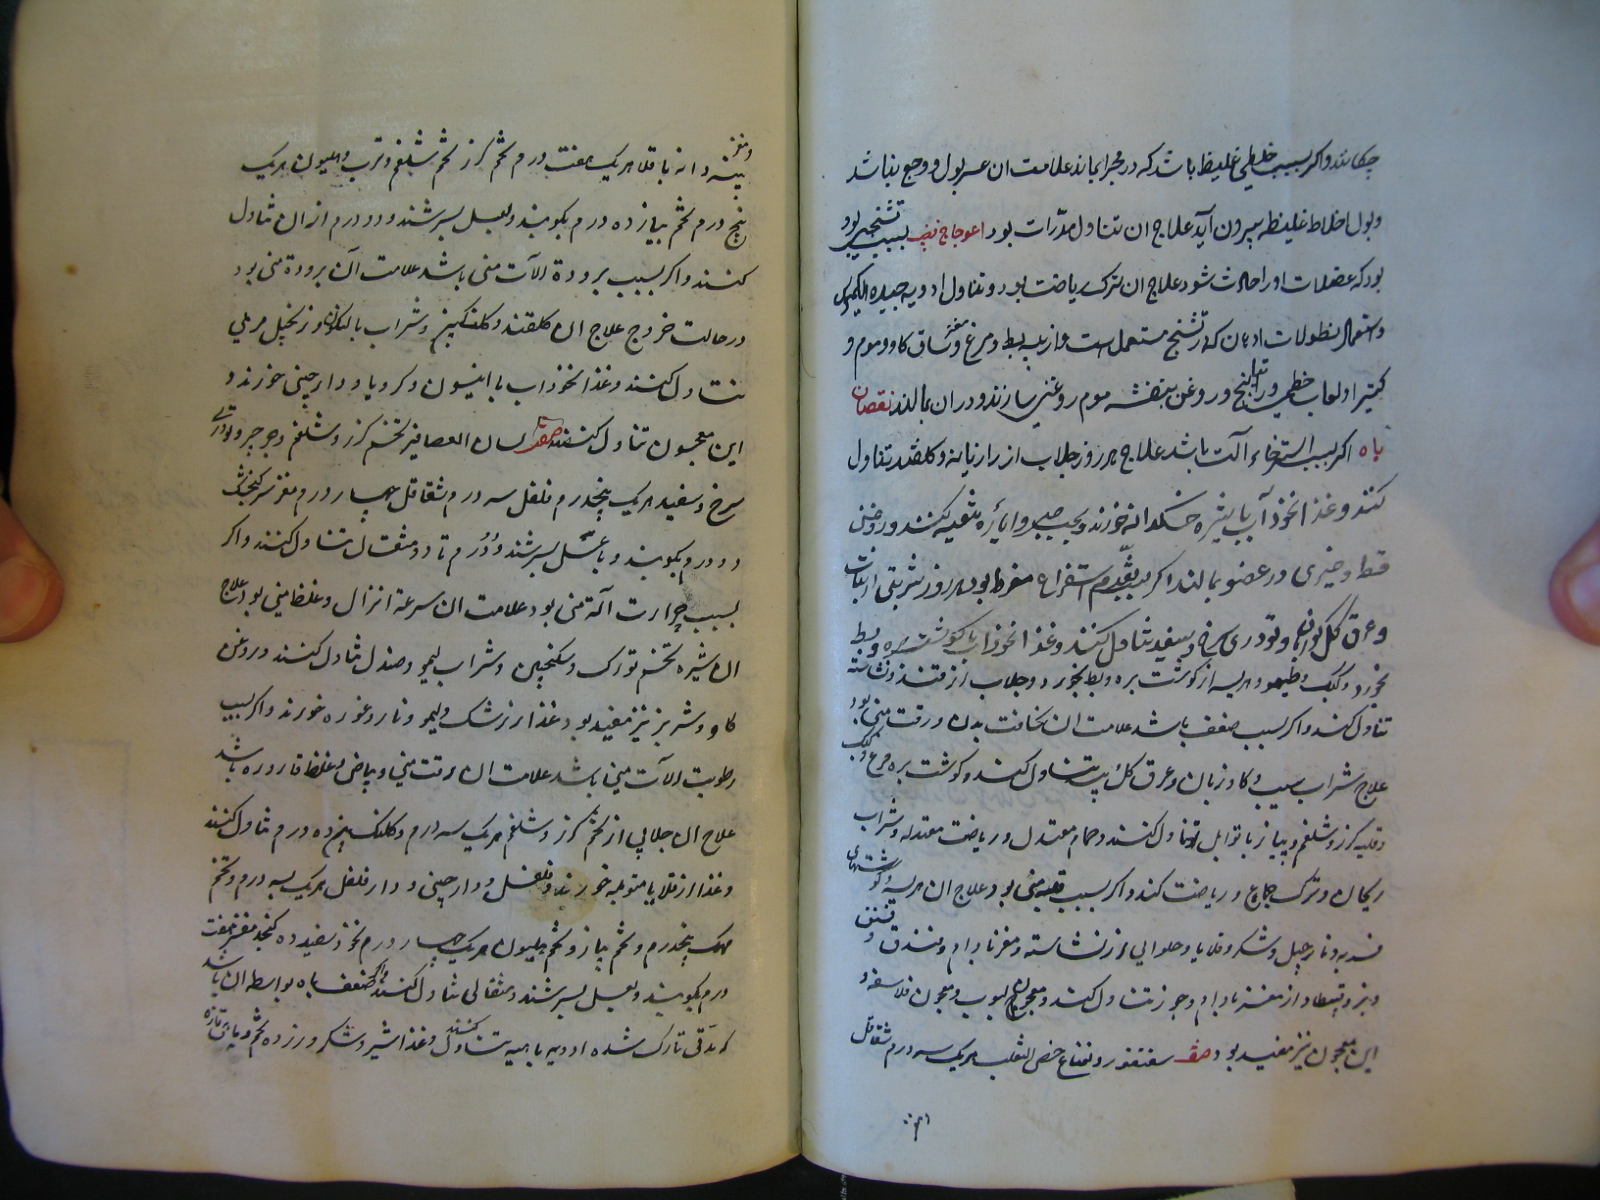 چکانند و اگر بسبب خلطی غلیظ باشد که در مجرا بماند علامت ان عسر بول و وجع بناشد
و بول اخلاط غلیظه بیرون آید علاج ان تناول مدرات بود اعوجاج قضیب بسبب تشنجی بود
بود که عضلات او را حادث شود علاج ان ترک ریاضت بود و تناول ادویه جیده الکیموس
و استعمال نطولات ادهان که در تشنج مستعمل است و از پیه بط و مرغ و مغز ساق کاو و موم و
کتیرا و لعاب خطمی و راتیانج و روغن بنفشه موم روغنی سازند و در ان بمالند نقصان
باه اگر بسبب استرخاء آلت باشد علاج هر روز جلاب از رازیانه و کلقند تناول
کنند و غذا نخوداب با شیره خسکدانه خورند و بحب صبر و ایاره تنقیه کنند و روغن
قسط و خیری در عضو بمالند اگر بتقدم استفراغ مفرط بود هر روز شربتی از نبات
و عرق کل و تودری سرخ و سفید تناول کنند و غذا نخوداب با کوشت بره و بط
بخورد و کبک و طیهو و هریسه از کوشت بره و بط بخورد و جلاب از قند و نشاسته
تناول کند و اگر بسبب ضعف باشد علامت ان نحافت بدن و رقت منی بود
علاج شراب سیب و کاوزبان و عرق کل تناول کنند و کوشت بره و مرغ و کبک
و قلیه کزر و شلغم و پیاز با توابل تناول کنند و حمام معتدل و ریاضت معتدله و شراب
ریحان و ترک جماع و ریاضت کند و اگر بسبب قلة منی بود علاج ان هریسه و کوشتهای
فربه و نارجیل و شکر و قلایا و حلوایی از نشاسته و مغز بادام و فندق و فستق
و بزر و از مغز بادام و جوز تناول کنند و معجون لبوب و معجون فلاسفه و
این معجون نیز مفید بود صفة سقنقور و نعناع خصی الثعلب هریک سه درم شقاقل
و مغز
پنبه دانه باقلا هریک هفت درم تخم کزر تخم شلغم و ترب و هلیون هریک
پنج درم تخم پیاز ده درم بکوبند و بعسل بسرشند و دو درم از ان تناول
کنند و اگر بسبب برودة الآت منی باشد علامت آن برودة منی بود
در حالت خروج علاج ان کلقند و کلنکبین و شراب بالنکو و زنجبیل مربی
تناول کنند و غذا نخوداب با انیسون و کرویا و دارچینی خورند و
این معجون تناول کنند صفة لسان العصافیر تخم کزر و شلغم و جرجیر و تودری
سرخ و سفید هریک پنجدرم فلفل سه درم شقاقل چهار درم مغز سر کنجشک
دو درم بکوبند و با عسل بسرشند و دو درم تا دو مثقال تناول کنند و اگر
بسبب حرارت آلة منی بود علامت ان سرعة انزال و غلظ منی بود علاج
ان شیره تخم تورک و سکنجبین و شراب لیمو و صندل تناول کنند و روغن
کاو و شیر بز نیز مفید بود غذا زرشک و لیمو و نار و غوره خورند و اگر بسبب
رطوبت الآت منی باشد علامت ان رقت منی و بیاض و غلظ قاروره باشد
علاج ان جلابی از تخم کزر و شلغم هریک سه درم و کلنکبین ده درم تناول کنند
و غذا از قلایا متوبله خورند و فلفل و دارچینی و دارفلفل هریک سه درم و تخم
پنجدرم و تخم پیاز و تخم هلیون هریک چهار درم نخود سفید ده کنجد مقشر هفت
درم بکوبند و بعسل بسرشند و مثقالی تناول کنند و اگر ضعف باه بواسطه ان باشد
که مدتی تارک شده ادویه باهیه تناول کنند و غذا شیر و شکر و زرده تخم و تازه